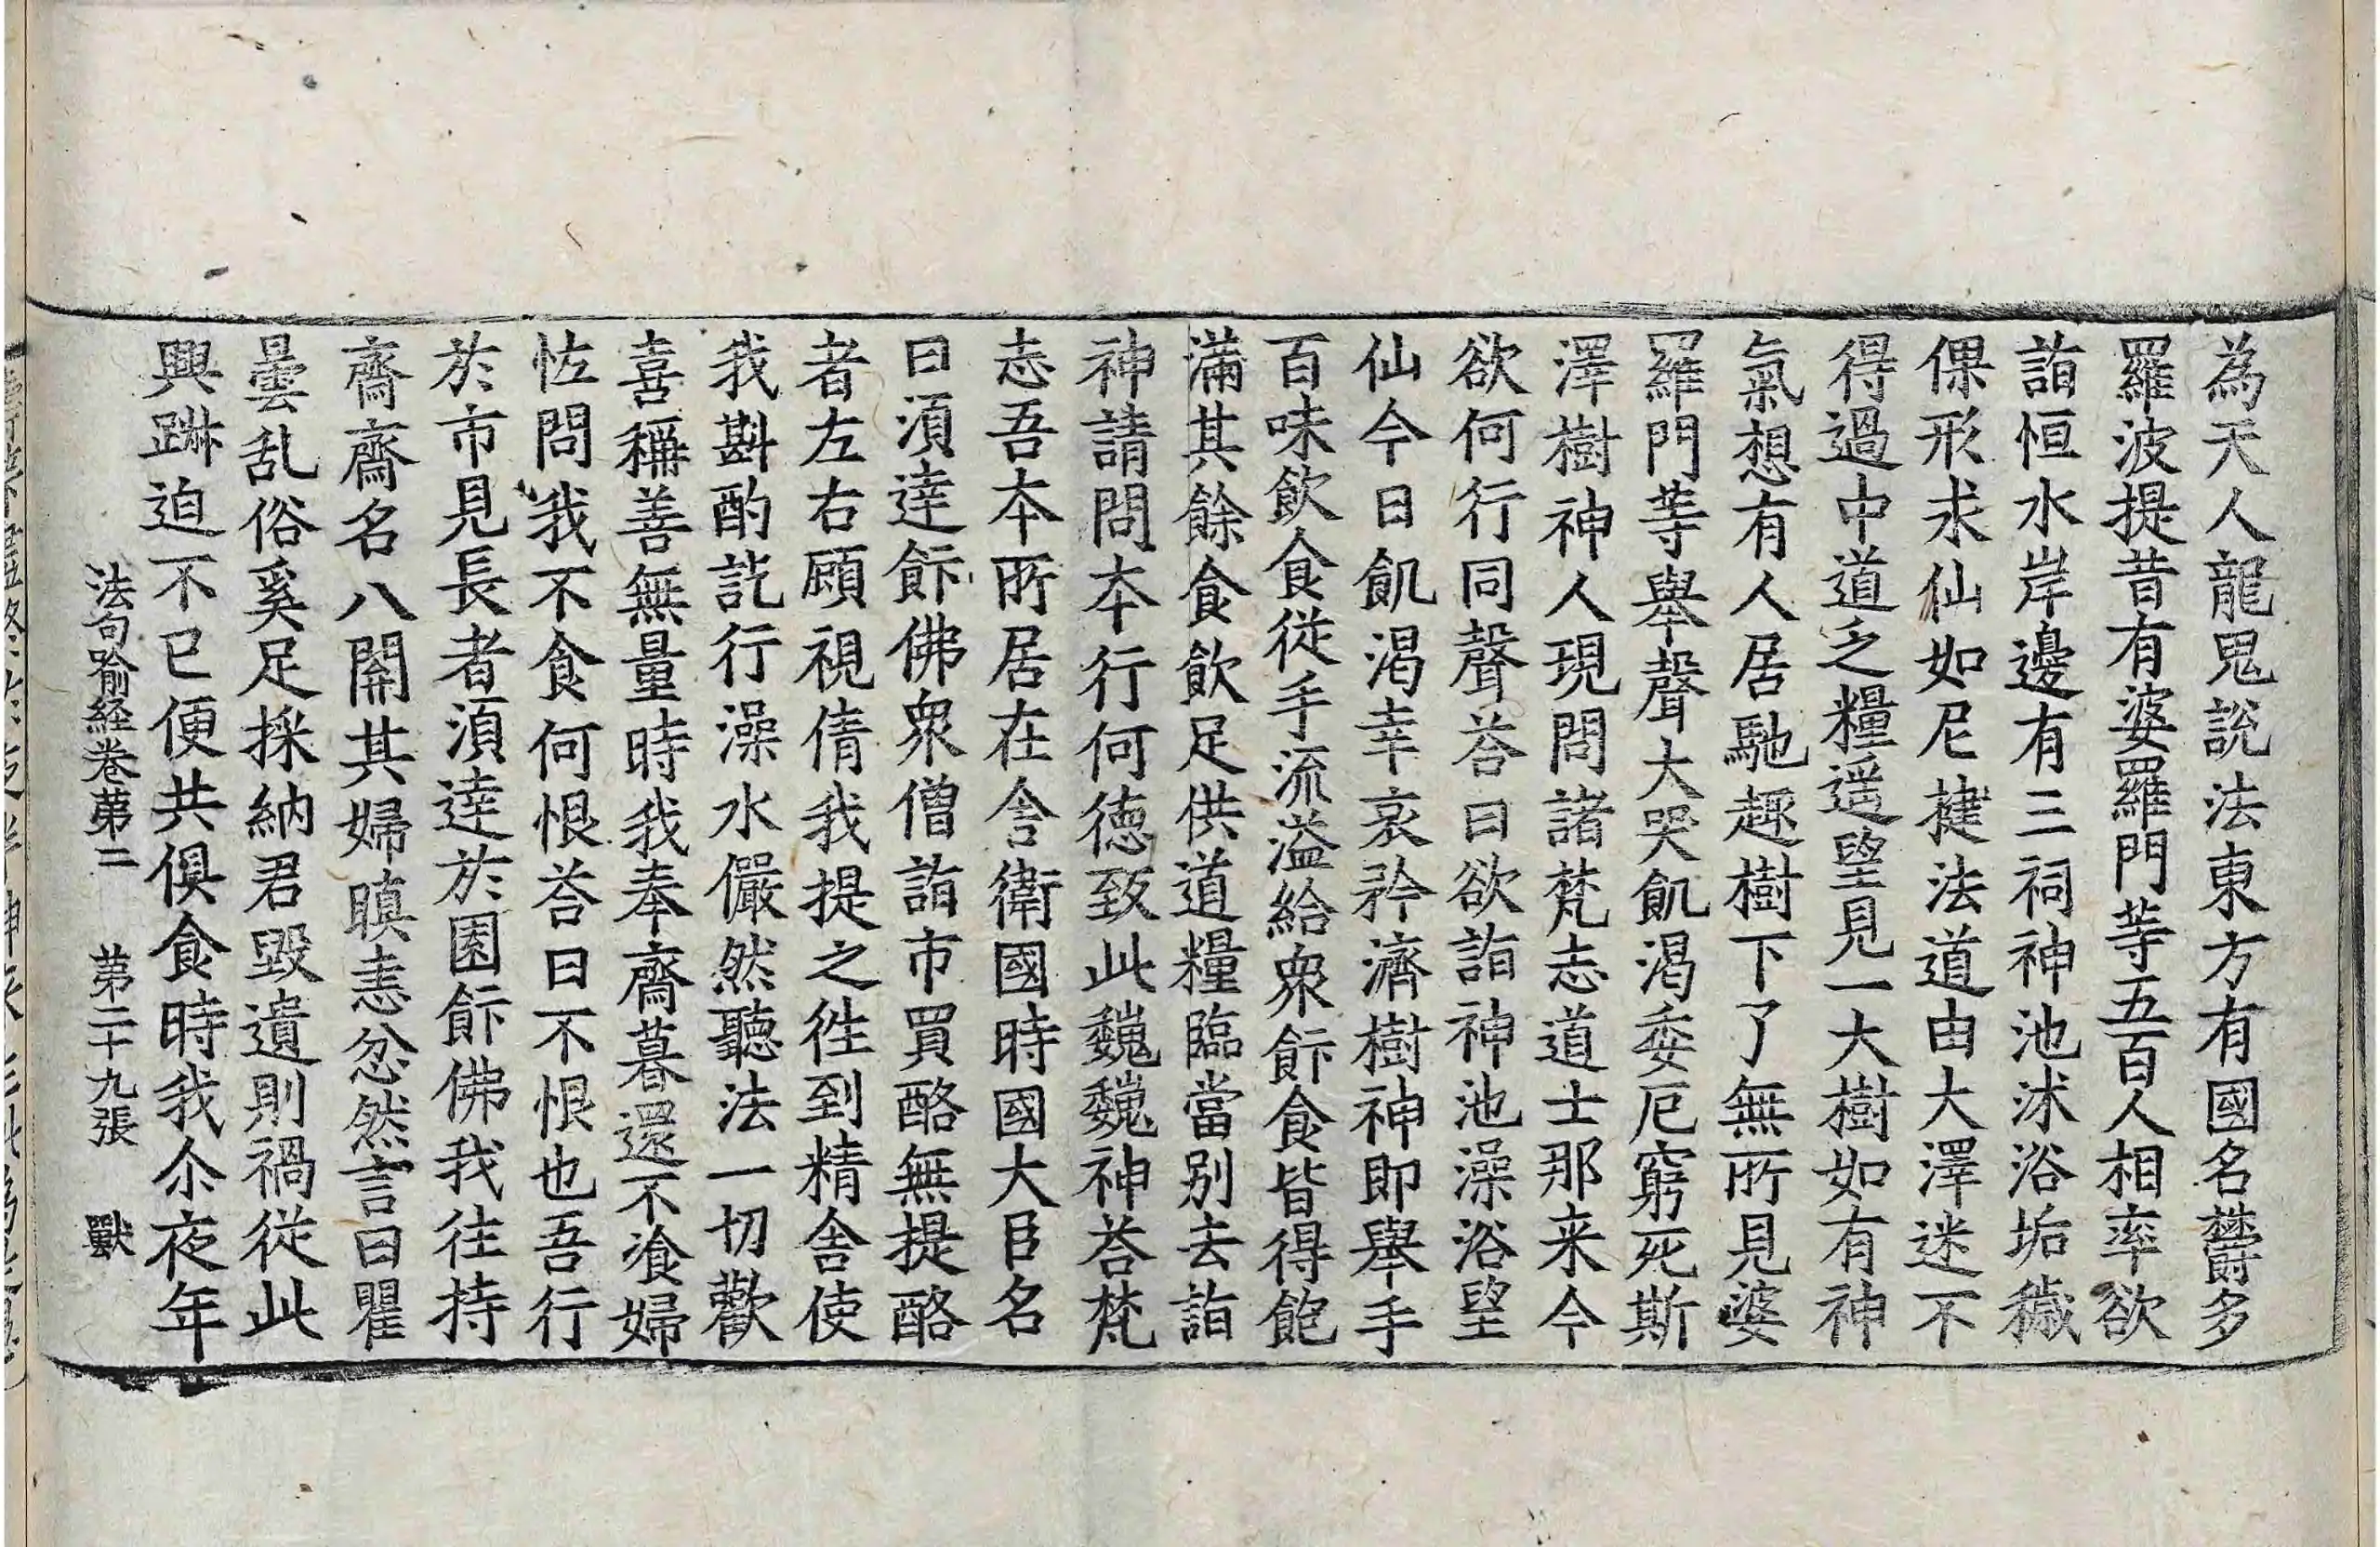 為天人龍鬼說法東方有國名欝多
羅波提昔有婆羅門等五百人相率欲
詣恒水岸邊有三祠神池沐浴垢穢
倮形求仙如尼揵法道由大澤迷不
得過中道乏糧遥望見一大樹如有神
氣想有人居馳趣樹下了無所見婆
羅門等舉聲大哭飢渴委厄窮死斯
澤樹神人現問諸梵志道士那来今
欲何行同聲荅曰欲詣神池澡浴望
仙今日飢渴幸哀矜濟樹神即舉手
百味飲食從手流溢給衆飰食皆得飽
滿其餘食飲足供道糧臨當别去詣
神請問本行何德致此巍巍神荅梵
志吾本所居在舍衛國時國大臣名
曰須達飰佛衆僧詣市買酪無提酪
者左右顧視倩我提之徃到精舍使
我斟酌訖行澡水儼然聽法一切歡
喜稱善無量時我奉齋暮還不飡婦
恠問我不食何恨荅曰不恨也吾行
於市見長者須達於園飰佛我往持
齋齋名八關其婦瞋恚忿然言曰瞿
曇乱俗奚足採納君毀遺則禍從此
興踧迫不已便共俱食時我尒夜年
法句喻経卷苐二 苐二十九張 獸